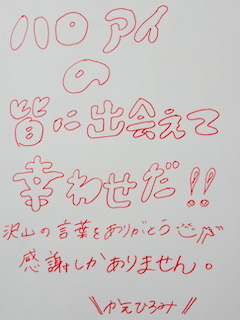 ハロアイ
の
皆に出会えて
幸わせだ!!
沢山の言葉をありがとう
感謝しかありません。
\\かえひろみ//